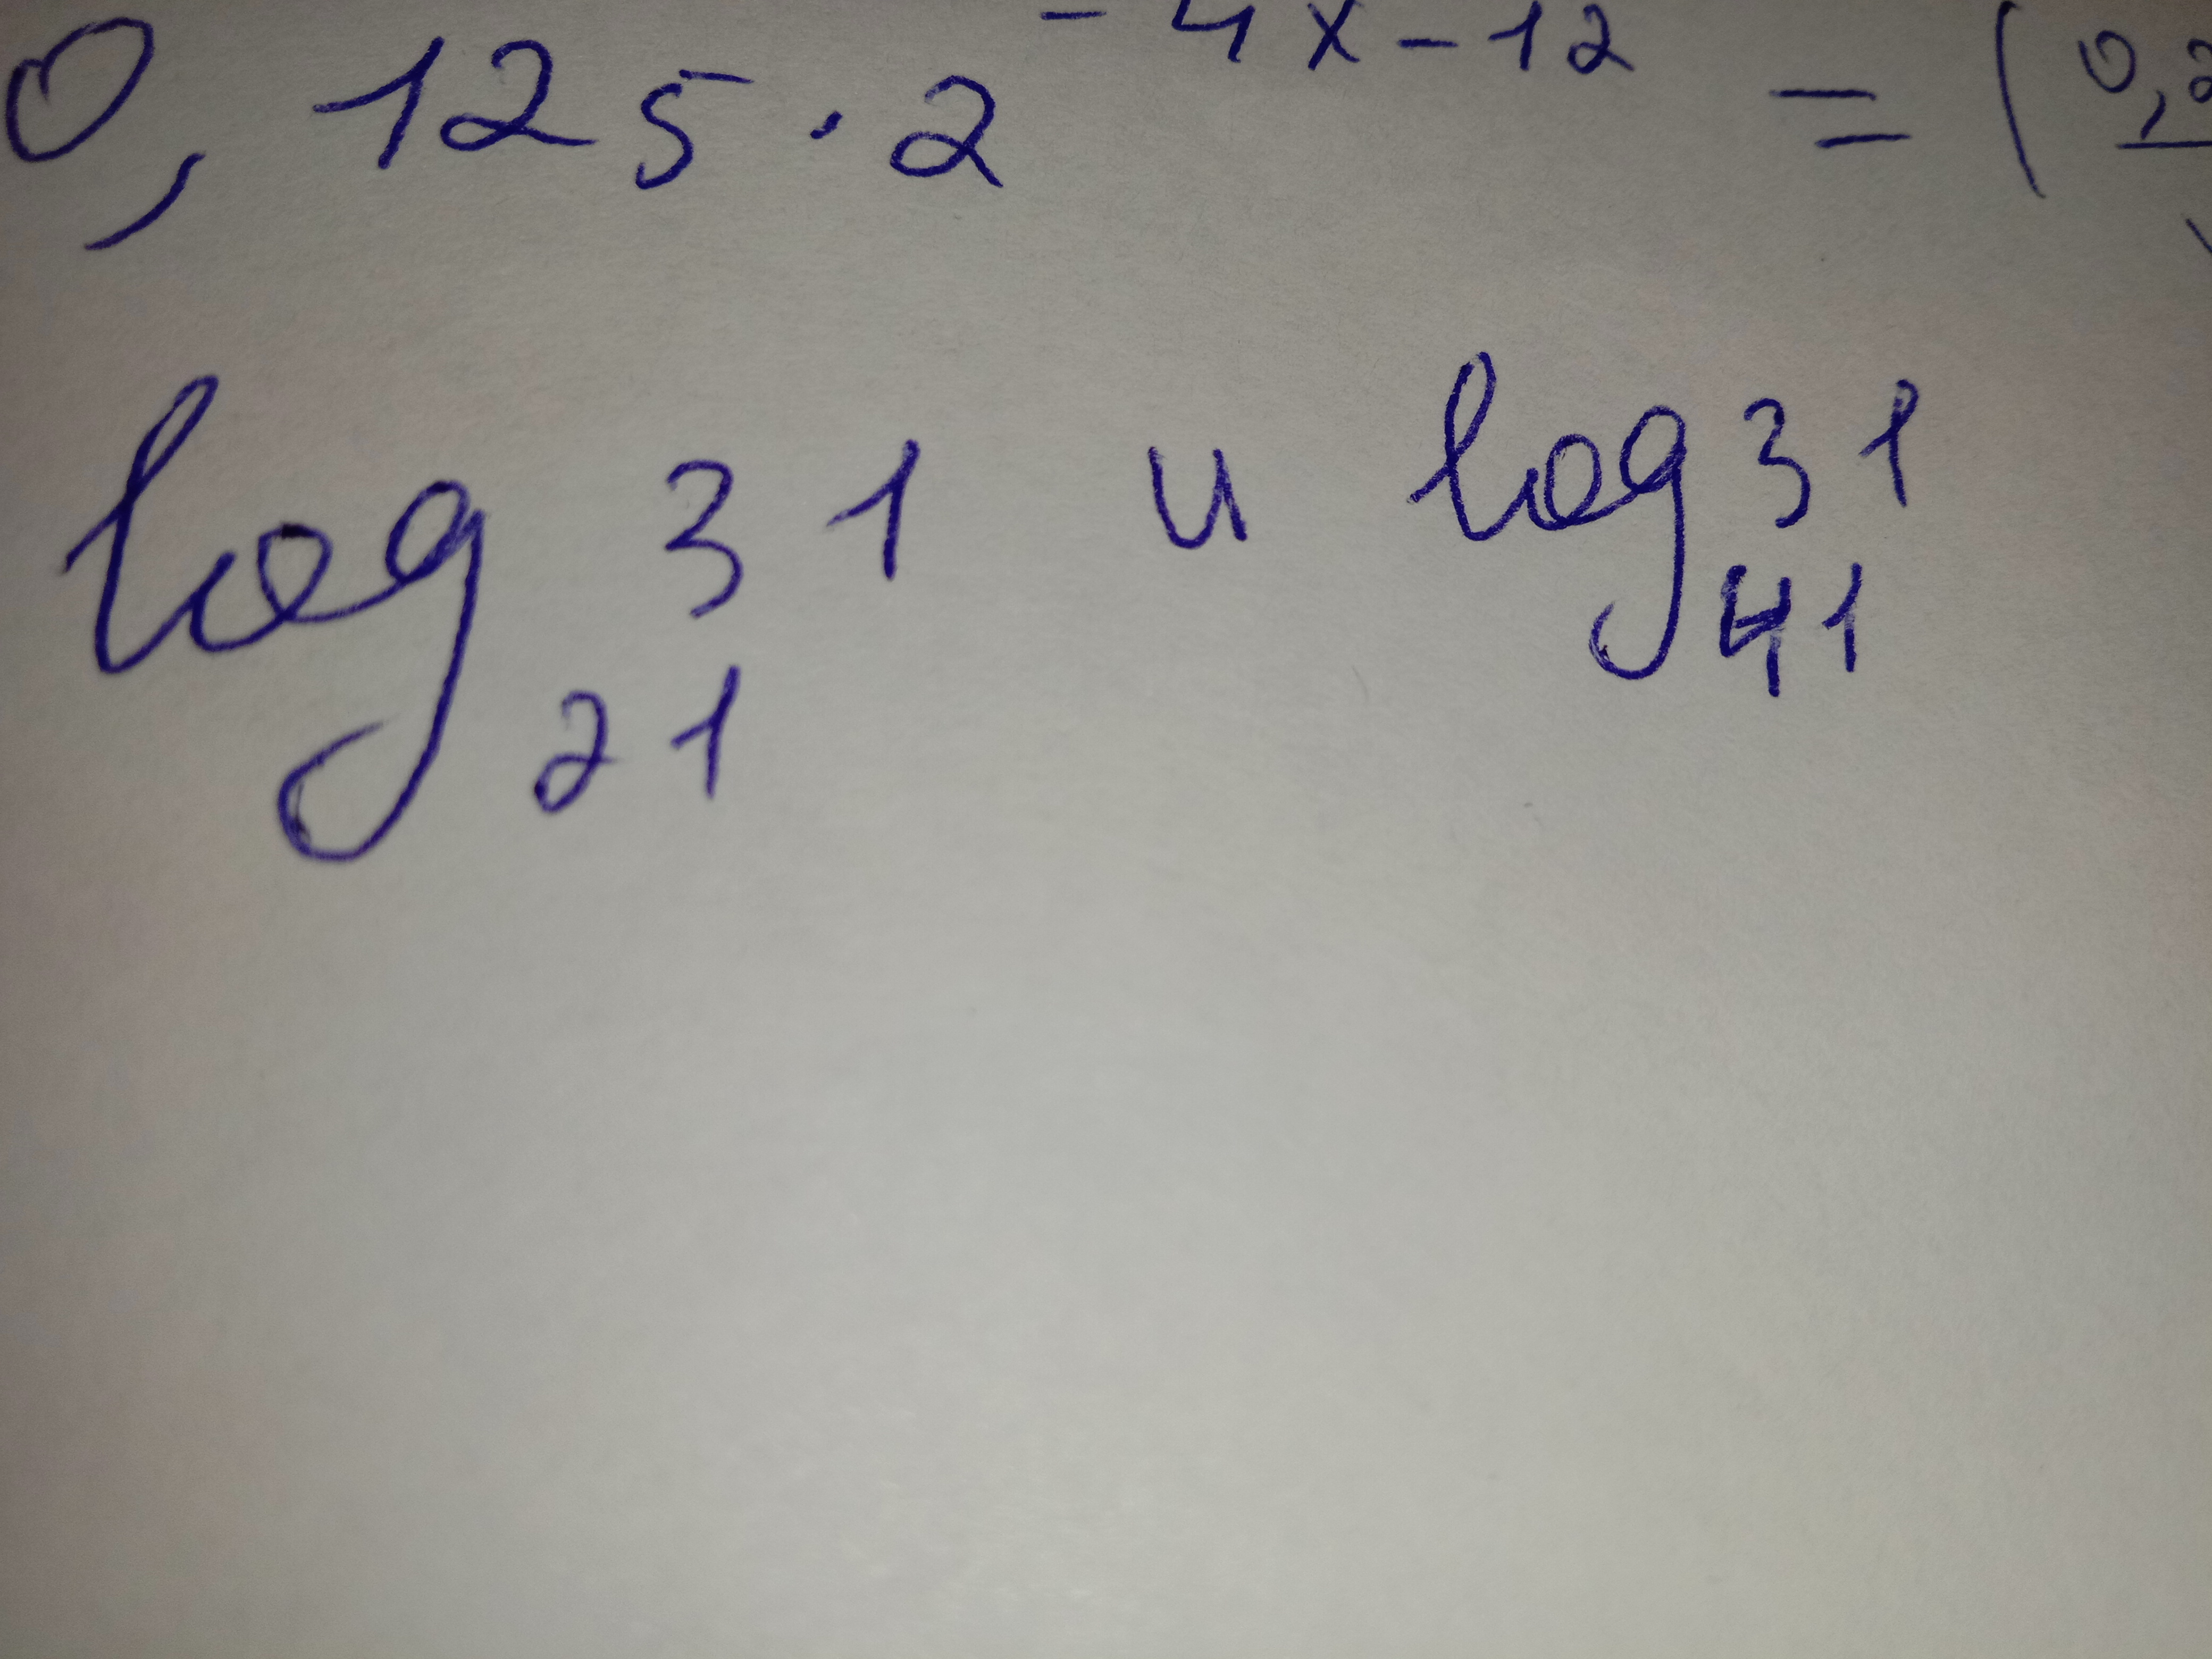 0,125·2^{-4x-12} = (0,2
log_{21} 31 и log_{41} 31